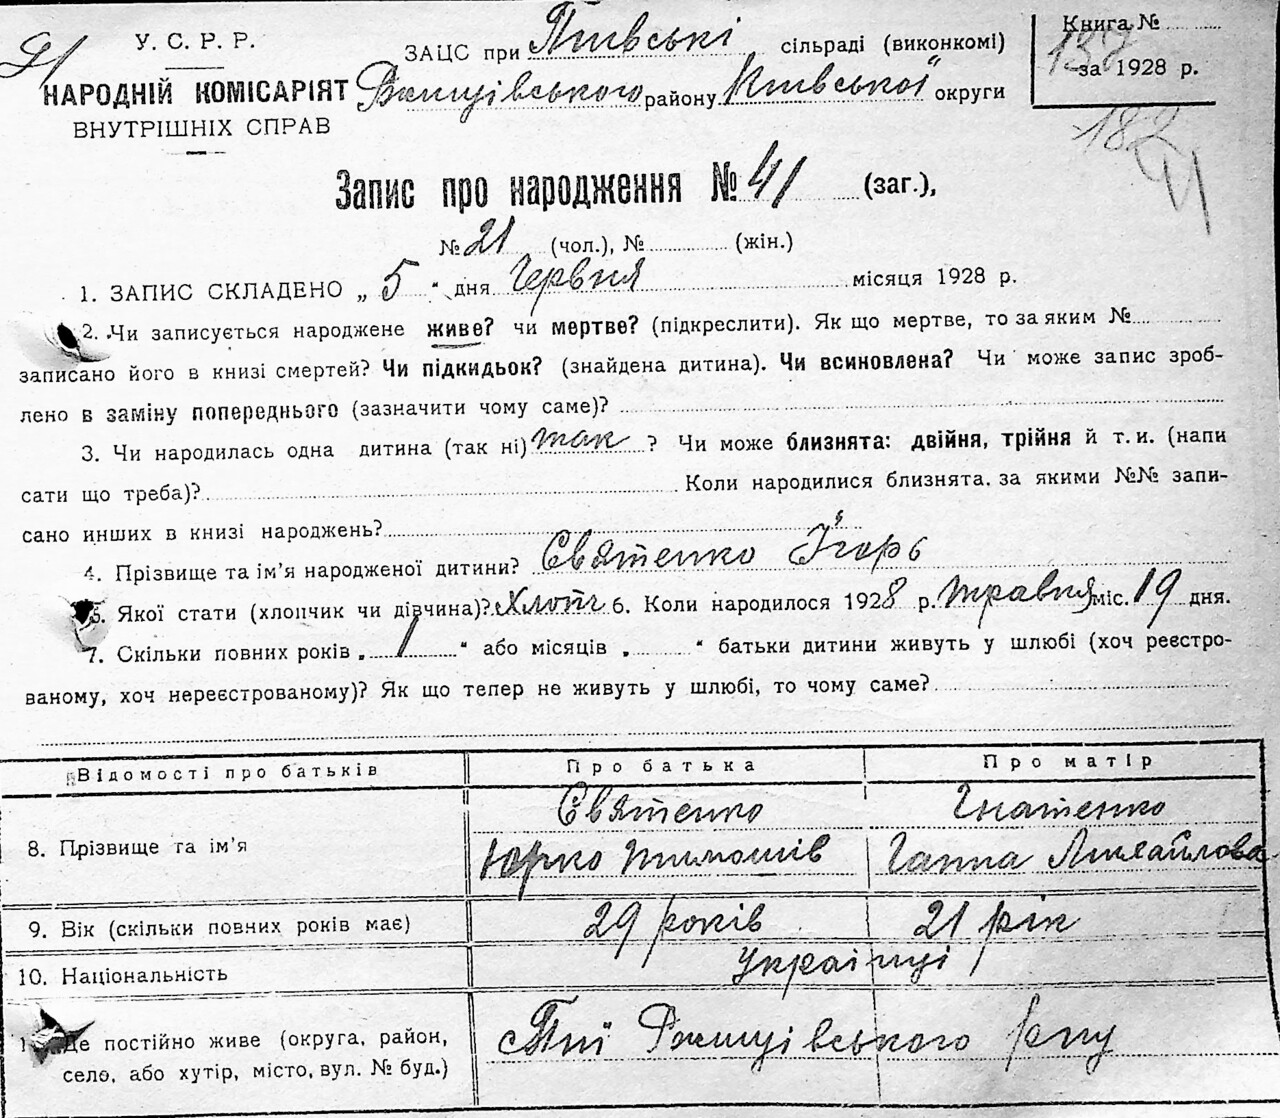 У. С. Р. Р.
НАРОДНІЙ КОМІСАРІЯТ
ВНУТРІШНІХ СПРАВ
ЗАЦС при Піївські сільраді (виконкомі)
Ржищівського району Київської округи
Книга №
137
за 1928 р.
182
Запис про народження № 41 (заг.),
№ 21 (чол.), № (жін.)
1. ЗАПИС СКЛАДЕНО „ 5 " дня Червня місяця 1928 р.
2. Чи записується народжене живе? чи мертве? (підкреслити). Як що мертве, то за яким №
записано його в книзі смертей? Чи підкидьок? (знайдена дитина). Чи всиновлена? Чи може запис зроб-
лено в заміну попереднього (зазначити чому саме)?
3. Чи народилась одна дитина (так ні) так ? Чи може близнята: двійня, трійня й т. и. (напи
сати що треба)? Коли народилися близнята. за якими №№ запи-
сано инших в книзі народжень?
4. Прізвище та ім'я народженої дитини? Святенко Ігорь
5. Якої стати (хлопчик чи дівчина)? Хлопч 6. Коли народилося 1928 р. травня міс. 19 дня.
7. Скільки повних років „ 1 " або місяців „ " батьки дитини живуть у шлюбі (хоч реєстро-
ваному, хоч нереєстрованому)? Як що тепер не живуть у шлюбі, то чому саме?
Відомості про батьків Про батька Про матір
8. Прізвище та ім'я Святенко Юрко Тимошів Гнатенко Ганна Михайлова
9. Вік (скільки повних років має) 29 років 21 рік
10. Національність Українці
Де постійно живе (округа, район,
село, або хутір, місто, вул. № буд.)
Пії Ржищівського р-ну